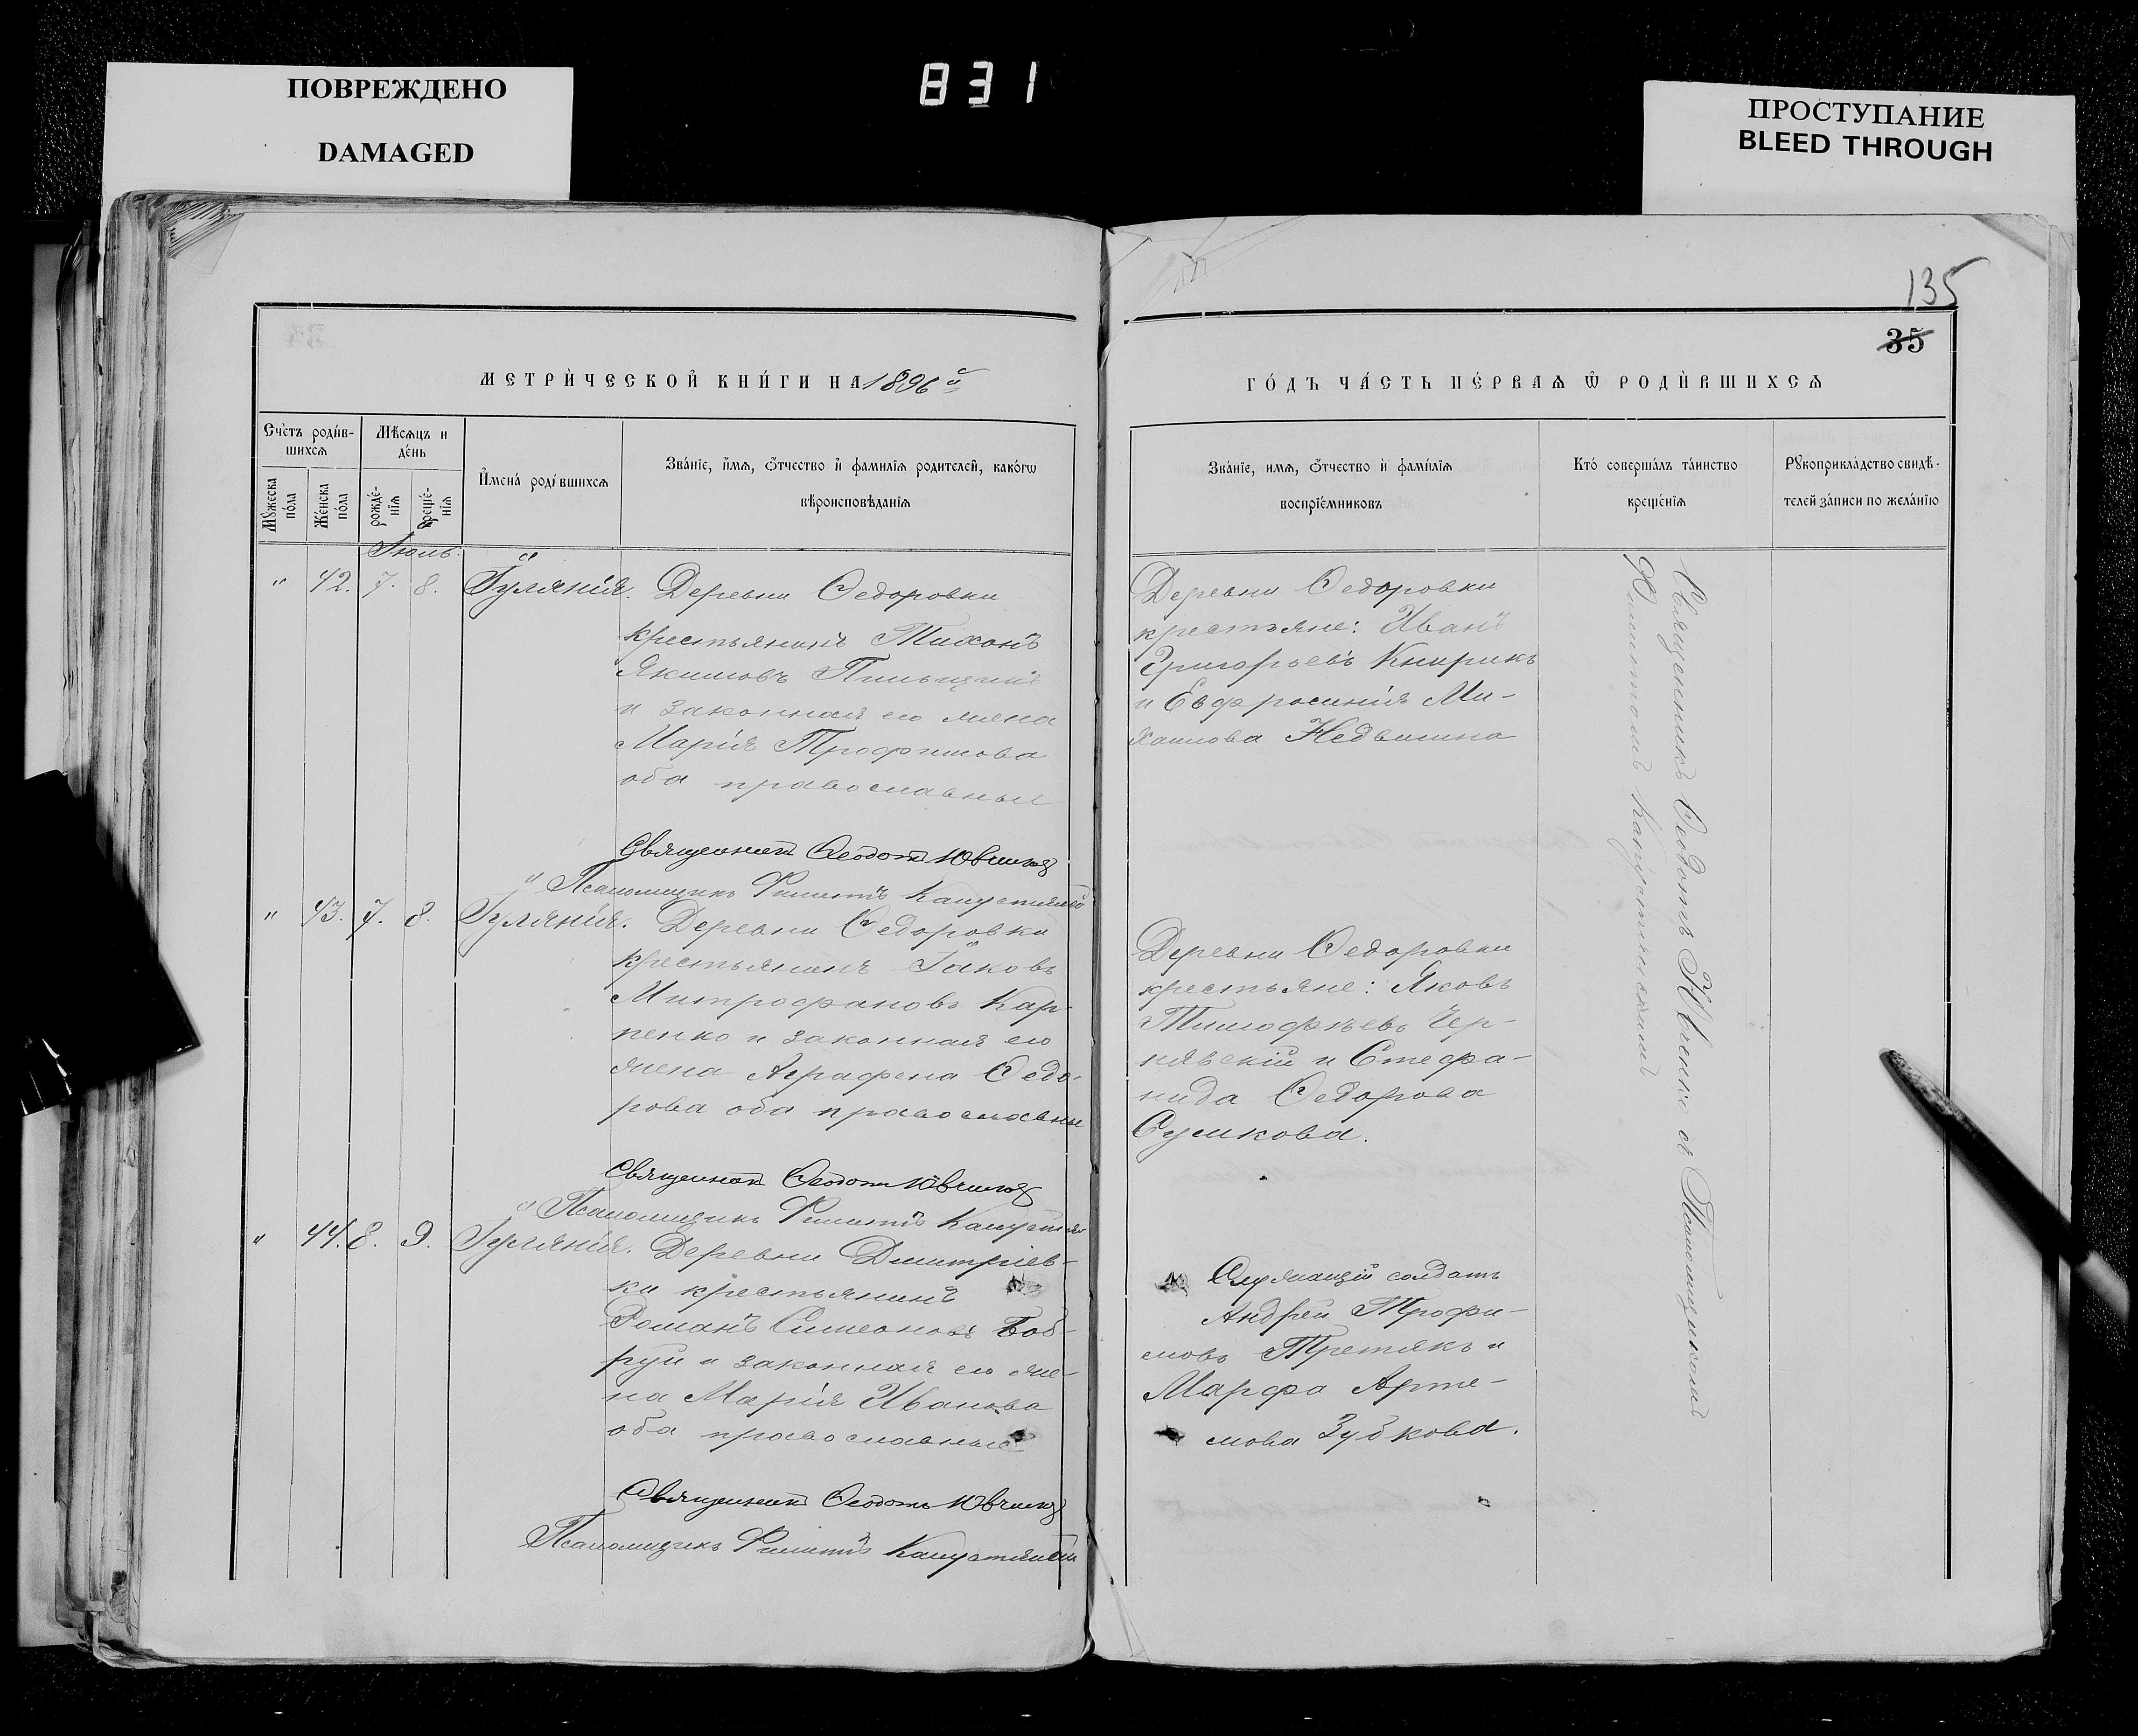 ПОВРЕЖДЕНО
DAMAGED
831
ПРОСТУПАНИЕ
BLEED THROUGH
135
35
МЕТРИ́ЧЕСКОЙ КНИ́ГИ НА 1896 й
ГО́ДЪ ЧА́СТЬ ПЕ́РВАѦ Ѡ҆ РОДИ́ВШИХСѦ
Сче́тъ роди́в-
шихсѧ
Мꙋ́жеска по́ла
Же́нска по́ла
Мѣ́сѧцъ и
де́нь
рожде́-
нїѧ
креще́-
нїѧ
И҆мена̀ роди́вшихсѧ
Зва́нїе, и҆́мѧ, ѻ҆́тчество и҆ фами́лїѧ родителей, како́гѡ
вѣроисповѣ́данїѧ
Зва́нїе, имѧ, ѻ҆́тчество и҆ фами́лїѧ
воспрїе́мниковъ
Кто̀ соверша́лъ та́инство
креще́нїѧ
Рꙋкоприкла́дство свидѣ́-
телей за́писи по жела́нїю
Іюль.
" 42. 7. 8. Іуліанія. Деревни Ѳедоровки
крестьянинъ Тихонъ
Якимовъ
и законная его жена
Марія Трофимова
оба православные
Священникъ Ѳеодотъ Ювченко
Псаломщикъ Филиппъ Капустянскій
Деревни Ѳедоровки
крестьяне: Иванъ
Григорьевъ Кнырикъ
и Евфросинія Ми-
хаилова
Священникъ Ѳеодотъ Ювченко съ Псаломщикомъ
Филиппомъ Капустянскимъ
" 43. 7. 8. Іуліанія. Деревни Ѳедоровки
крестьянинъ Іаковъ
Митрофановъ Кар-
пенко и законная его
жена Аграфена Ѳедо-
рова оба православные
Священникъ Ѳеодотъ Ювченко
Псаломщикъ Филиппъ Капустянскій
Деревни Ѳедоровки
крестьяне: Яковъ
Тимофѣевъ Чер-
нявскій и Стефа-
нида Ѳедорова
Сушкова.
" 44. 8. 9. Іуліанія. Деревни Димитріев-
ки крестьянинъ
Романъ Симеоновъ Боб-
руй и законная его же-
на Марія Иванова
оба православные
Священникъ Ѳеодотъ Ювченко
Псаломщикъ Филиппъ Капустянскій
Служащій солдатъ
Андрей Трофи-
мовъ Третякъ и
Марфа Арте-
мова Зубкова.